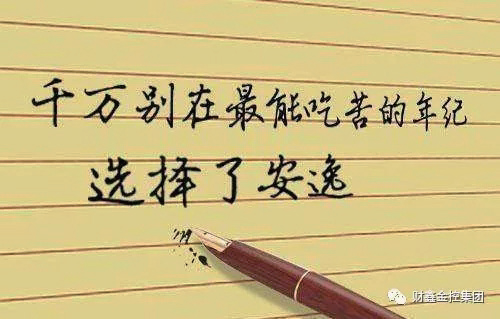 千万别在最能吃苦的年纪
选择了安逸
财鑫金控集团